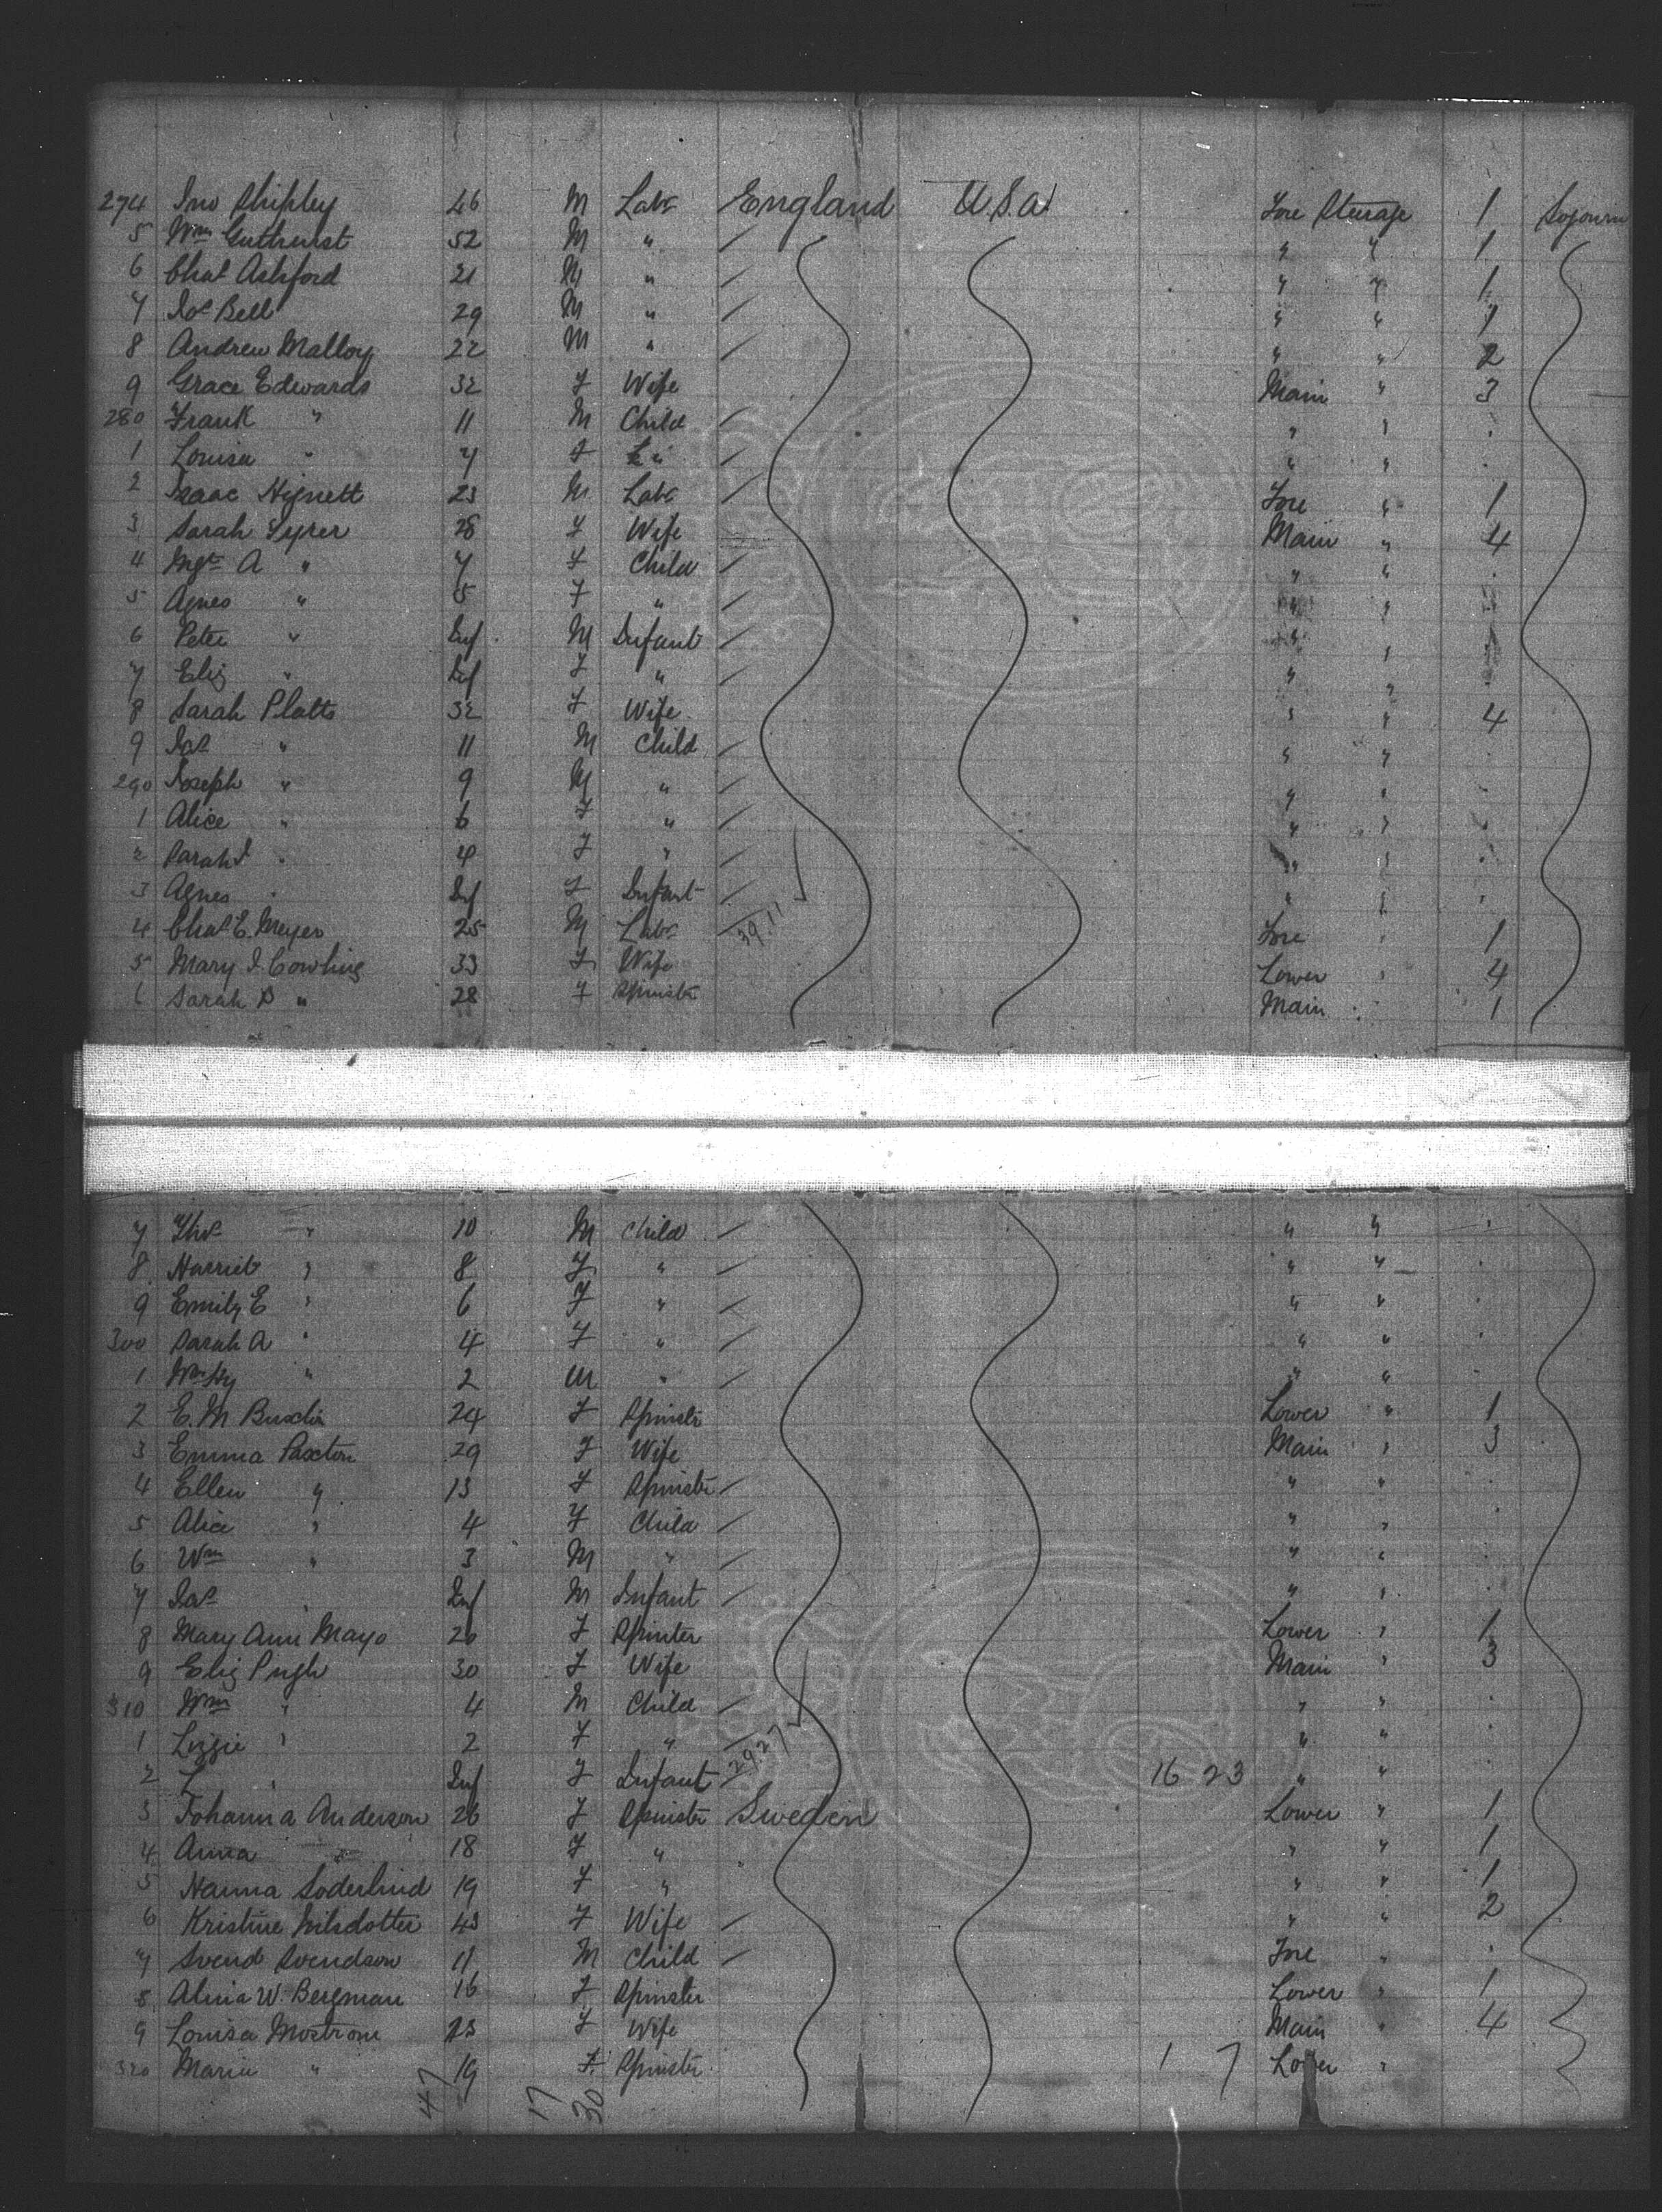 274 Jno Shipley 46 M Labr England U.S.A. Fore Steerage 1 Sojourn
5 Wm Guthurst 52 M " " " 1
6 Chas Ashford 21 M " " " 1
7 Jos Bell 29 M " " " 1
8 Andrew Malloy 22 M " " " 2
9 Grace Edwards 32 F Wife Main " 3
280 Frank " 11 M Child " "
1 Louisa " 7 F " "
2 Isaac Hignett 23 M Labr Fore " 1
3 Sarah Tyrer 28 F Wife Main " 4
4 Mgt A " 7 F Child " "
5 Agnes " 5 F " " "
6 Peter " Inf M Infant " "
7 Eliz " Inf F " " "
8 Sarah Platts 32 F Wife " " 4
9 Jas " 11 M Child " "
290 Joseph " 9 M " " "
1 Alice " 6 F " " "
2 Sarah J " 4 F " " "
3 Agnes " Inf F Infant " "
4 Chas E. Meyer 25 M Labr 39.11 Fore " 1
5 Mary J Cowling 33 F Wife Lower " 4
6 Sarah B " 28 F Spinster Main " 1
7 Thos " 10 M Child " "
8 Harriet " 8 F " " "
9 Emily E " 6 F " " "
300 Sarah A " 4 F " " "
1 Wm Hy " 2 M " " "
2 E. M 24 F Spinstr Lower " 1
3 Emma Paxton 29 F Wife Main " 3
4 Ellen " 13 F Spinster " "
5 Alice " 4 F Child " "
6 Wm " 3 M " " "
7 Jas " Inf M Infant " "
8 Mary Ann Mayo 20 F Spinster Lower " 1
9 Eliz Pugh 30 F Wife Main " 3
310 Wm " 4 M Child " "
1 Lizzie " 2 F " " "
2 " Inf F Infant 29.27 16 23 " "
3 Johanna Anderson 26 F Spinster Sweden Lower " 1
4 Anna " 18 F " " " 1
5 Hanna Soderlind 19 F " " " 1
6 Kristine Nilsdotter 43 F Wife " " 2
7 Svend Svendson 11 M Child Fore "
8 Alina W. Bergman 16 F Spinster Lower " 1
9 Louisa Mostrom 23 F Wife Main " 4
320 Maria " 19 F Spinster 1 7 Lower "
47 17 30